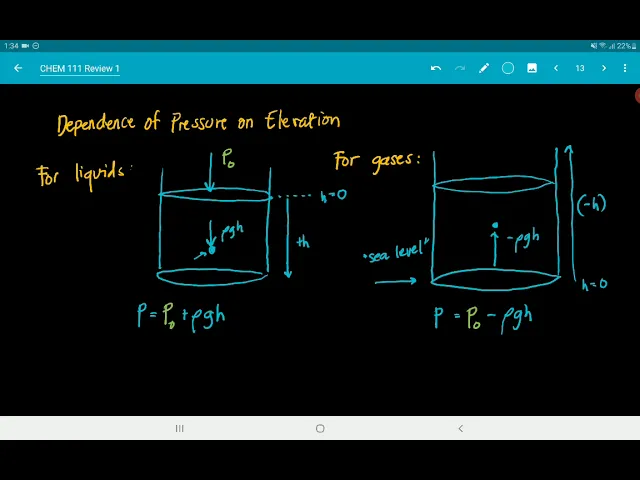 1:34
22%
CHEM 111 Review 1
13
Dependence of Pressure on Elevation
For liquids:
P₀
h=0
ρgh
+h
P = P₀ + ρgh
For gases:
(-h)
-ρgh
"sea level"
h=0
P = P₀ - ρgh